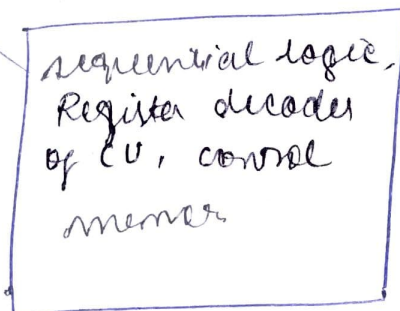 sequential logic,
Register decoders
of CU, control
memory